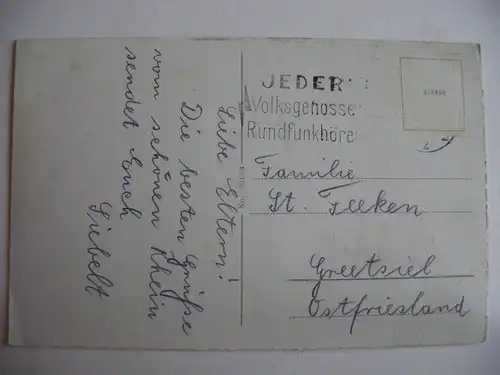 Liebe Eltern!
Die besten Grüße
vom schönen Rhein
sendet Euch
Siebelt
JEDER
Volksgenosse
Rundfunkhöre
Familie
St. Feeken
Greetsiel
Ostfriesland